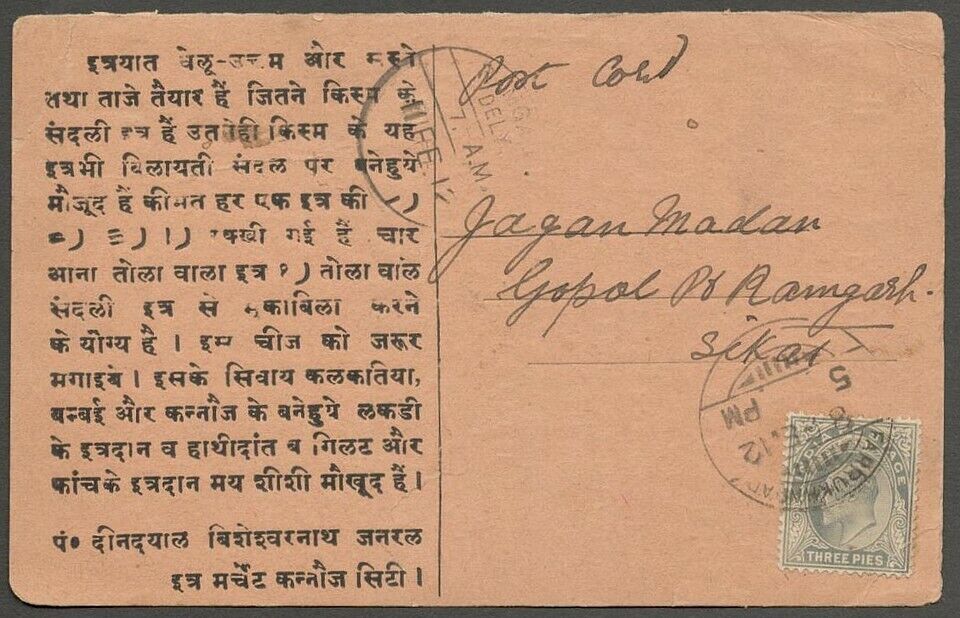 इत्रयात वेलू-उत्तम और सस्ते
तथा ताजे तैयार हैं जितने किस्म के
संदली इत्र हैं उतनेही किस्म के यह
इत्रभी विलायती संदल पर बनेहुये
मौजूद हैं कीमत हर एक इत्र की -)
=) ≡) ।) रक्खी गई हैं चार
आना तोला वाला इत्र १) तोला वाले
संदली इत्र से मुकाबिला करने
के योग्य है । इस चीज को जरूर
मगाइये । इसके सिवाय कलकतिया,
बम्बई और कन्नौज के बनेहुये लकडी
के इत्रदान व हाथीदांत व गिलट और
कांचके इत्रदान मय शीशी मौजूद हैं ।
पं० दीनदयाल विशेश्वरनाथ जनरल
इत्र मर्चेंट कन्नौज सिटी ।
Post Card
Jagan Madan
Gopol Po Ramgarh.
Sikar
DELY
7. A.M.
11 FE. 12
5 PM
12
FARRUKHABAD
THREE PIES